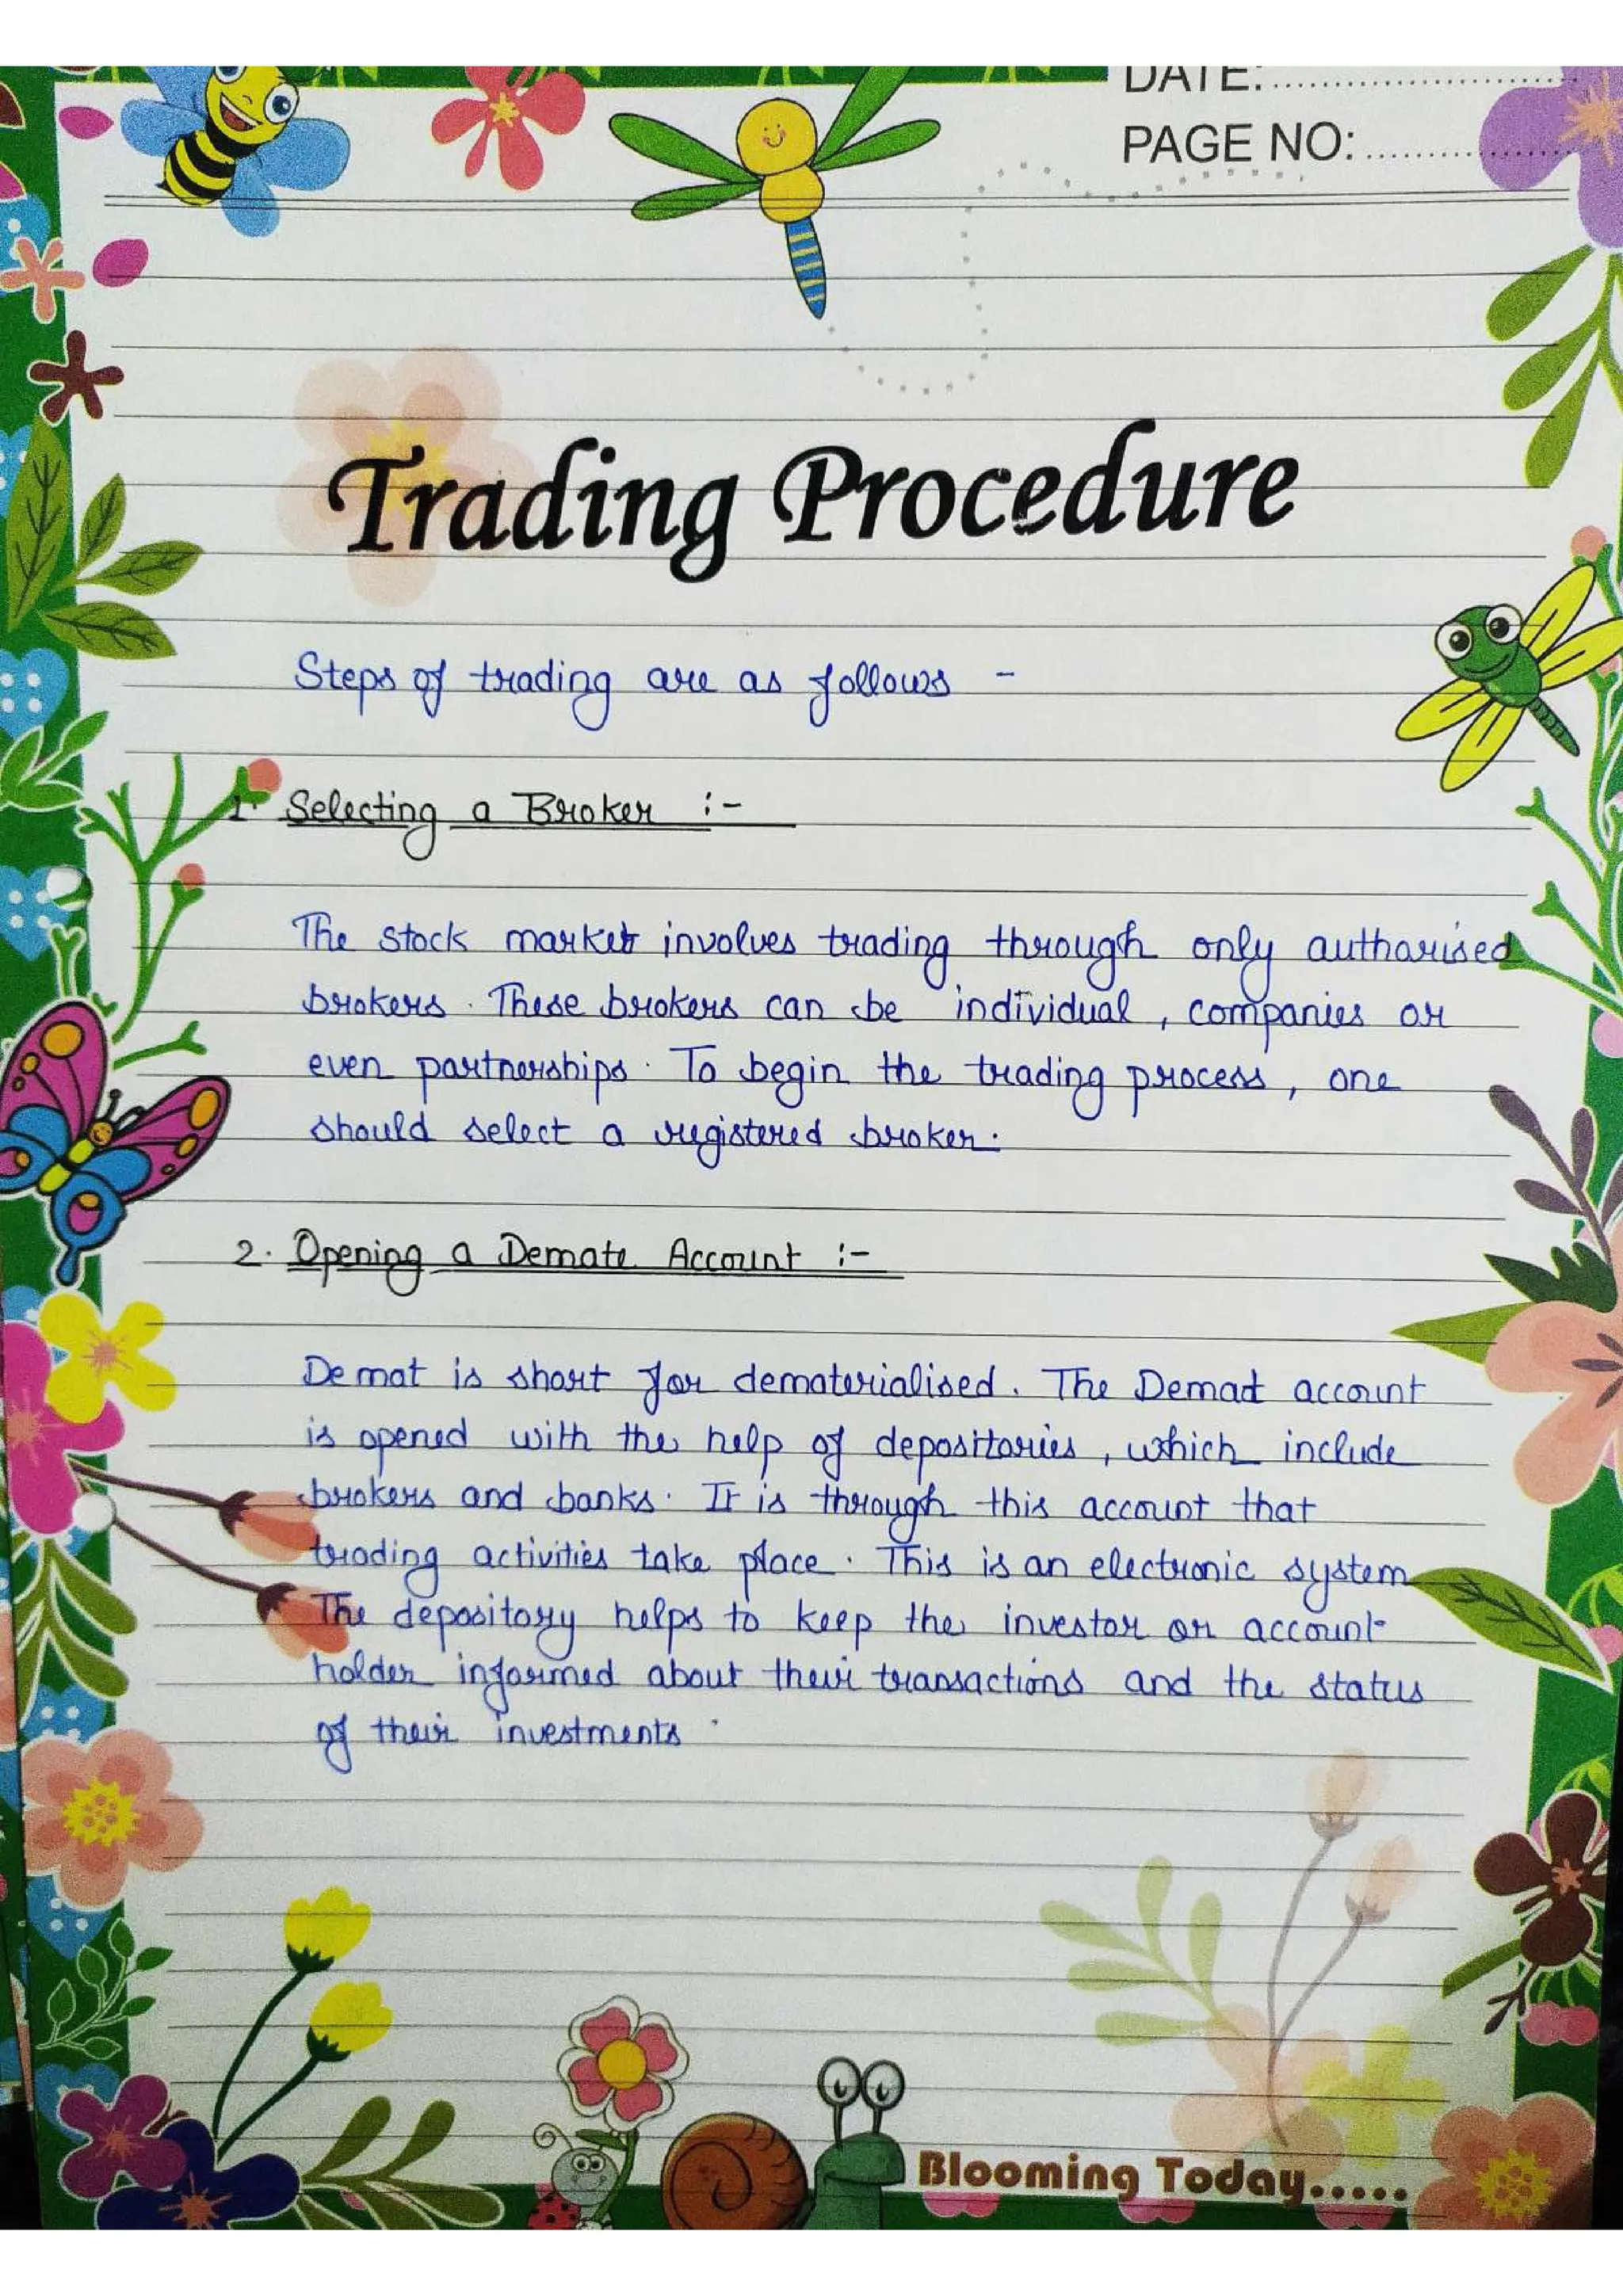 DATE:
PAGE NO:
Trading Procedure
Steps of trading are as follows -
1. Selecting a Broker :-
The stock market involves trading through only autharised
brokers. These brokers can be individual, companies or
even partnerships. To begin the trading process, one
should select a registered broker.
2. Opening a Demate Account :-
De mat is short for dematerialised. The Demat account
is opened with the help of depositories, which include
brokers and banks. It is through this account that
trading activities take place. This is an electronic system
The depository helps to keep the investor or account-
holder informed about their transactions and the status
of their investments.
Blooming Today.....